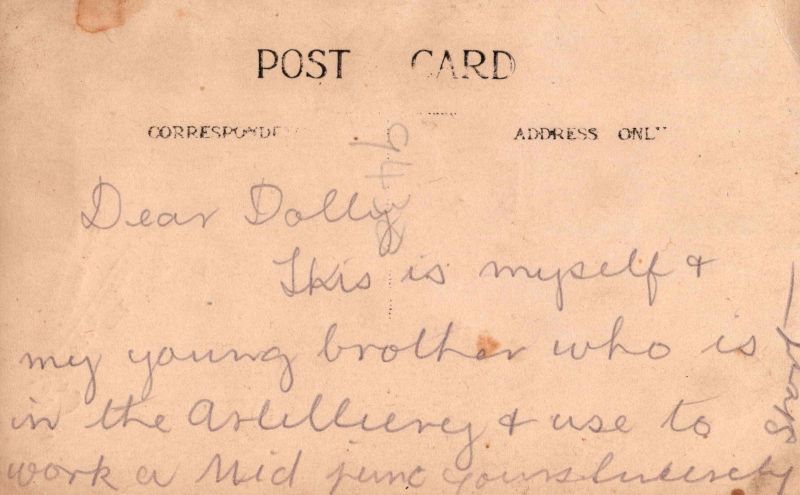 POST CARD
CORRESPONDE
ADDRESS ONL
Dear Dolly
This is myself &
my young brother who is
in the Artilliery & use to
work a Mid junc yours sincerely